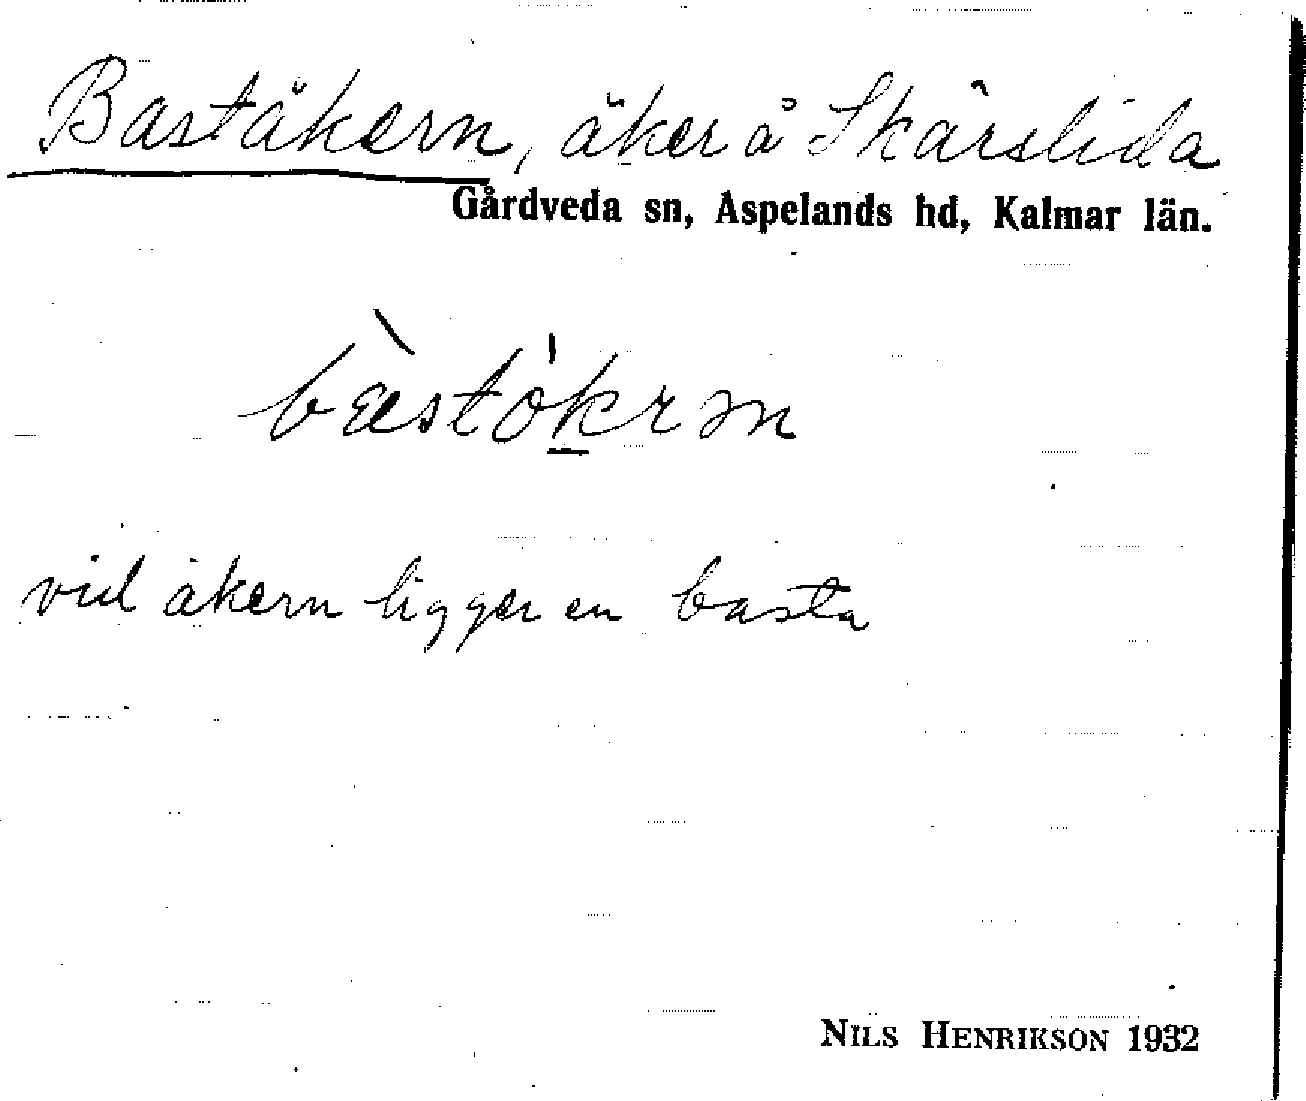 Baståkern, åker å Skärslida
Gårdveda sn, Aspelands hd, Kalmar län.
bàstòkrɷn
vid åkern ligger en basta
NILS HENRIKSON 1932